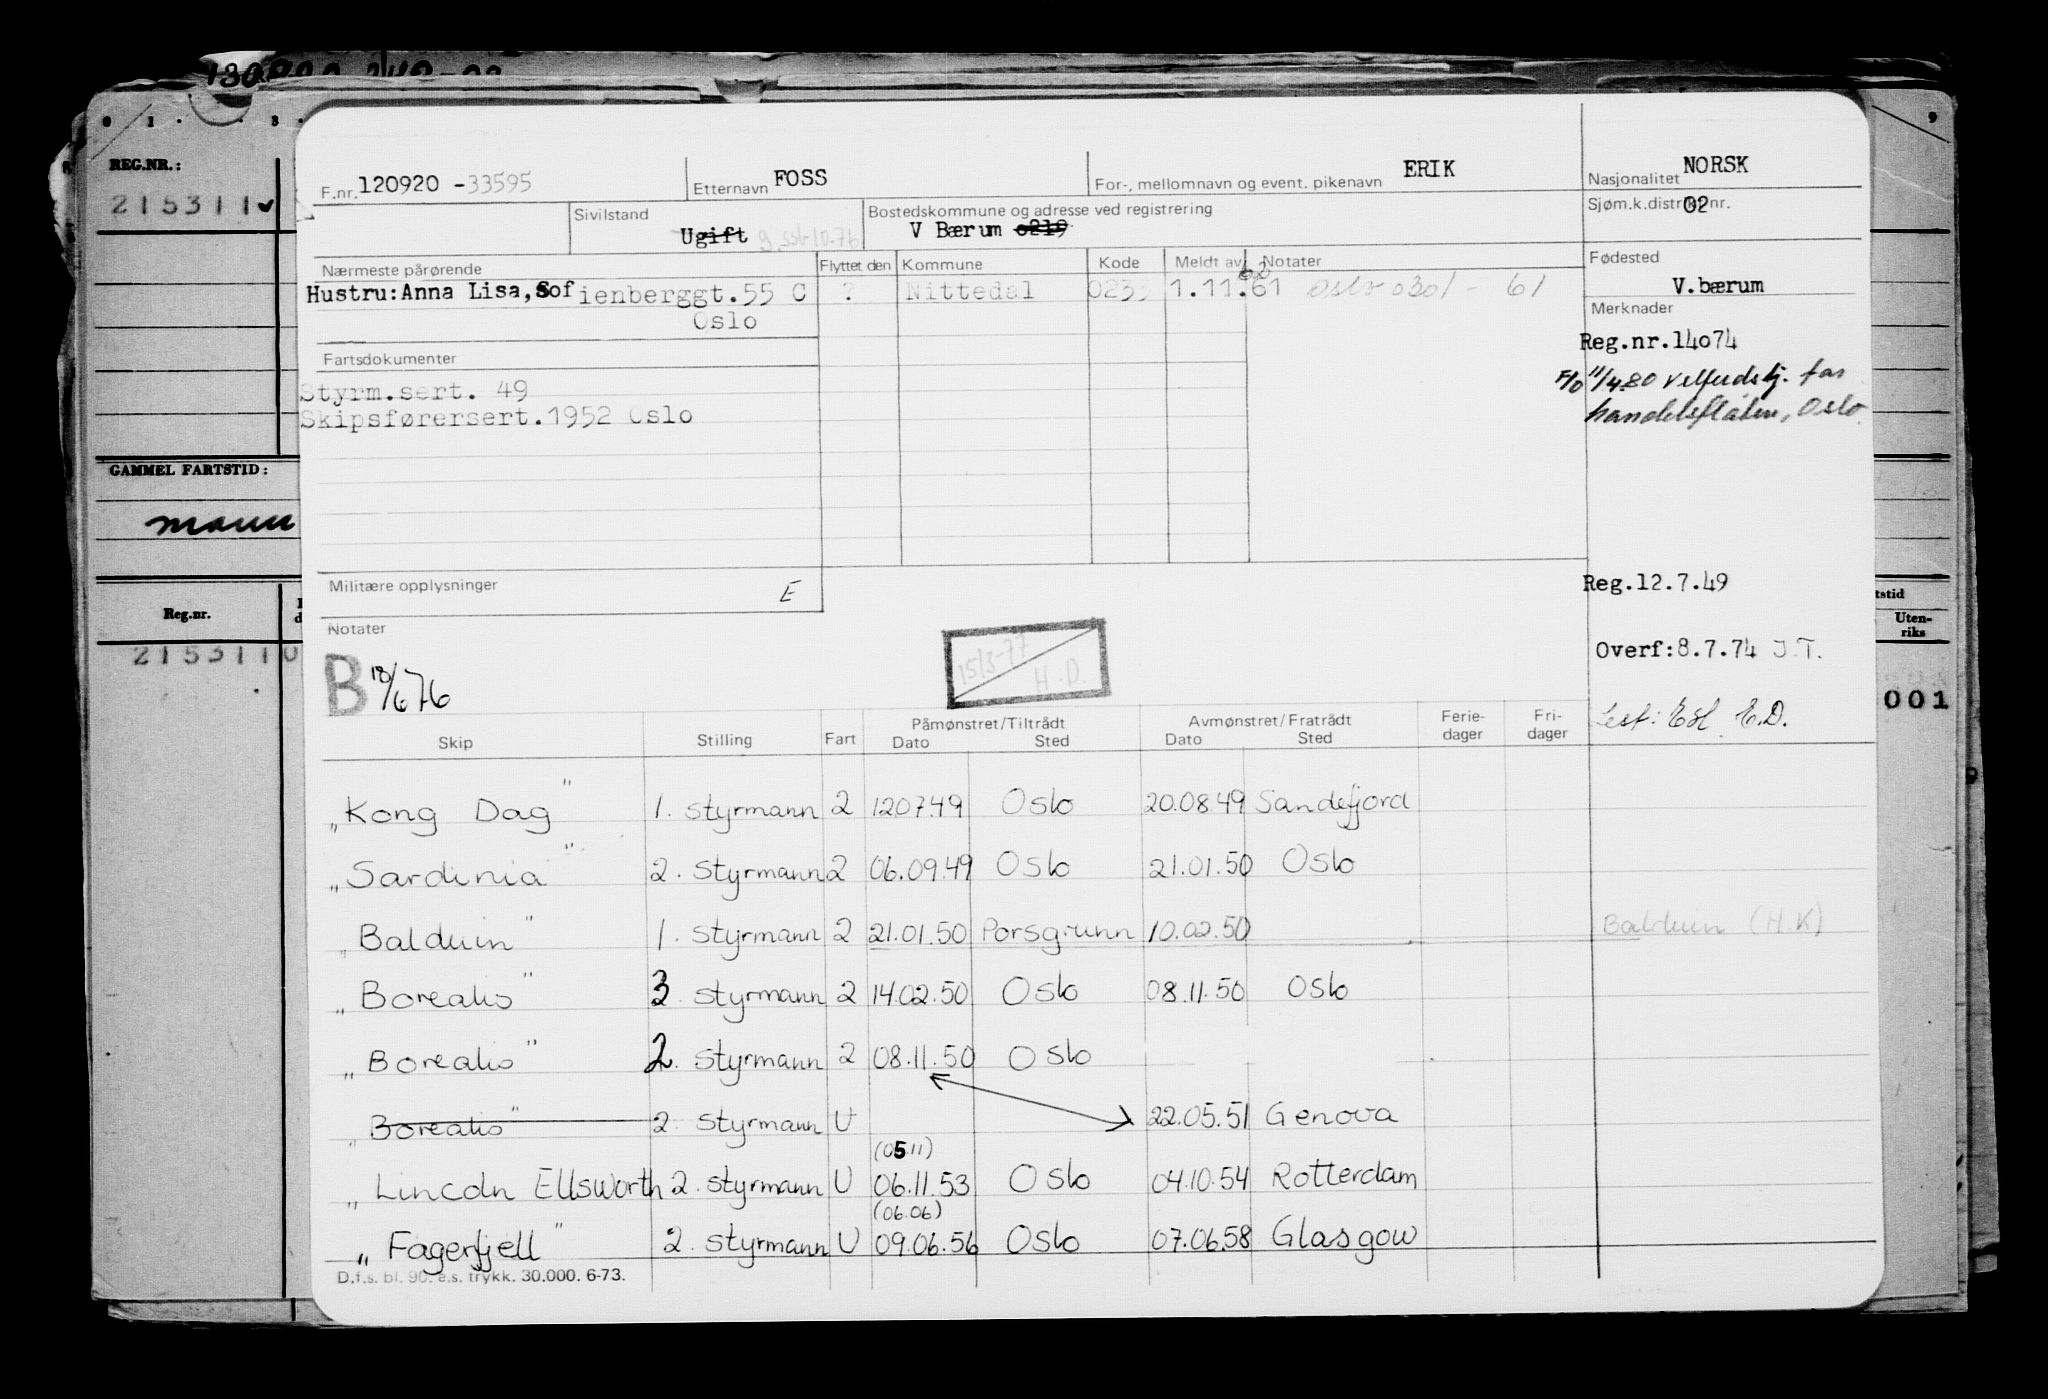 REG.NR.:
215311
GAMMEL FARTSTID:
mann
Reg.nr.
215311 0
9
tstid
Uten-
riks
001
F.nr. 120920 -33595
Etternavn FOSS
For-, mellomnavn og event. pikenavn ERIK
Nasjonalitet NORSK
Sivilstand
Ugift
Bostedskommune og adresse ved registrering
V Bærum 0219
Sjøm.k.distrikt nr.
02
Nærmeste pårørende
Hustru:Anna Lisa, Sofienberggt.55 C
Oslo
Flyttet den Kommune Kode Meldt av Notater
? Nittedal 0233 1.11.61 Oslo 0301 - 61
62
Fødested
V.bærum
Merknader
Reg.nr.14074
F/O 11/4.80 Velferdstj. for
handelsflåten, Oslo
Fartsdokumenter
Styrm.sert. 49
Skipsførersert.1952 Oslo
Militære opplysninger E
Reg.12.7.49
Notater
B 18/6 76
15/3-77
H.D.
Overf:8.7.74 J.T.
Skip Stilling Fart Påmønstret/Tiltrådt Dato Sted Avmønstret/Fratrådt Dato Sted Ferie-dager Fri-dager
E.D.
"Kong Dag" 1. styrmann 2 120749 Oslo 20.08.49 Sandefjord
"Sardinia" 2. styrmann 2 06.09.49 Oslo 21.01.50 Oslo
"Balduin" 1. styrmann 2 21.01.50 Porsgrunn 10.02.50 Balduin (H.K)
"Borealis" 3 styrmann 2 14.02.50 Oslo 08.11.50 Oslo
"Borealis" 2. styrmann 2 08.11.50 Oslo
"Borealis" 2. styrmann U 22.05.51 Genova
(05.11)
"Lincoln Ellsworth 2. styrmann U 06.11.53 Oslo 04.10.54 Rotterdam
(06.06)
"Fagerfjell" 2. styrmann U 09.06.56 Oslo 07.06.58 Glasgow
D.f.s. bl. 90. e.s. trykk. 30.000. 6-73.